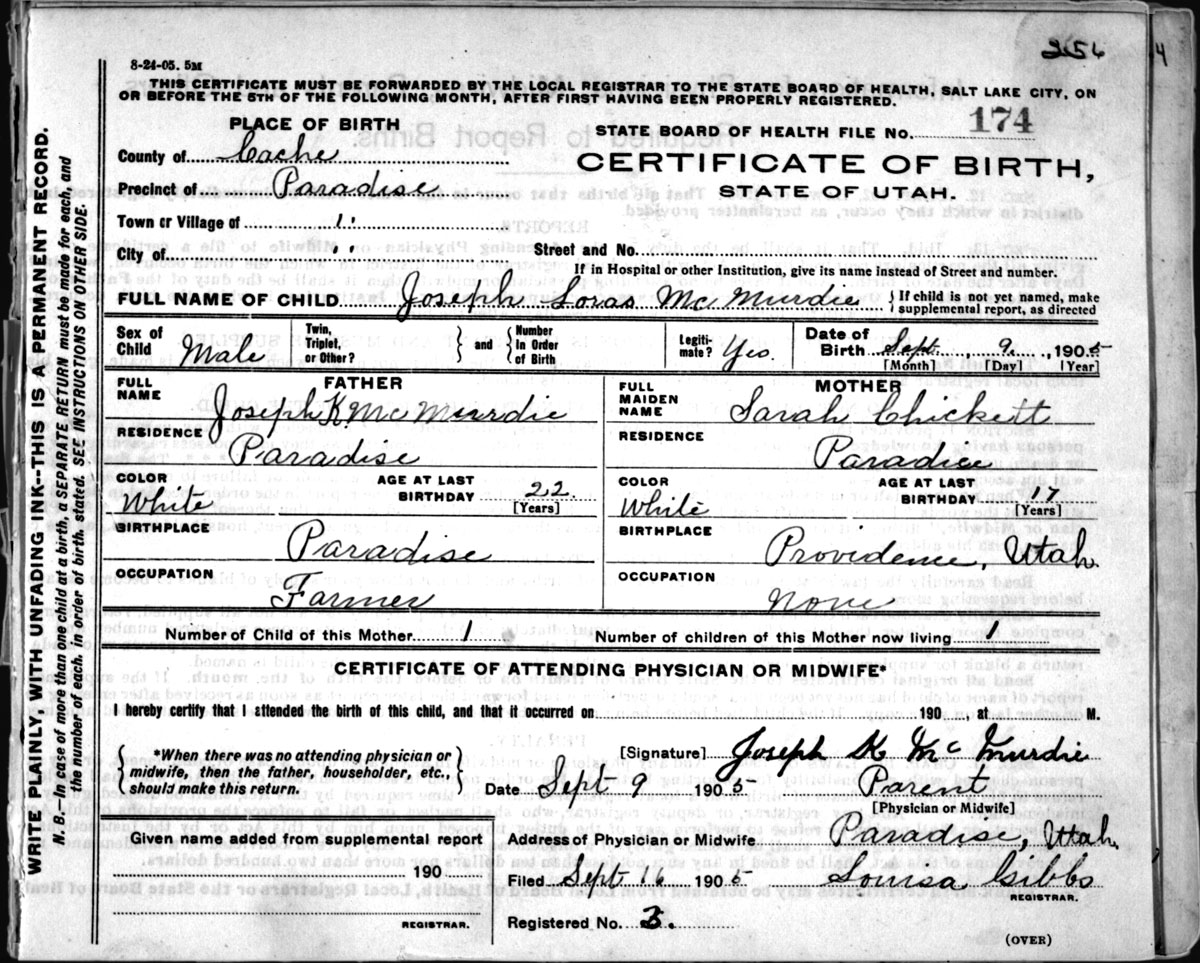 256
4
8-24-05. 5M
THIS CERTIFICATE MUST BE FORWARDED BY THE LOCAL REGISTRAR TO THE STATE BOARD OF HEALTH, SALT LAKE CITY, ON
OR BEFORE THE 5TH OF THE FOLLOWING MONTH, AFTER FIRST HAVING BEEN PROPERLY REGISTERED.
PLACE OF BIRTH
STATE BOARD OF HEALTH FILE NO. 174
County of Cache
CERTIFICATE OF BIRTH,
Precinct of Paradise
STATE OF UTAH.
Town or Village of "
City of "
Street and No.
If in Hospital or other Institution, give its name instead of Street and number.
FULL NAME OF CHILD Joseph Loras McMurdie { If child is not yet named, make
supplemental report, as directed
Sex of Child Male
Twin, Triplet, or Other? } and { Number In Order of Birth
Legiti-mate? Yes
Date of Birth Sept. 9, 1905
[Month] [Day] [Year]
FATHER
FULL NAME Joseph K. McMurdie
RESIDENCE Paradise
COLOR White
AGE AT LAST BIRTHDAY 22
[Years]
BIRTHPLACE Paradise
OCCUPATION Farmer
MOTHER
FULL MAIDEN NAME Sarah Chickett
RESIDENCE Paradice
COLOR White
AGE AT LAST BIRTHDAY 17
[Years]
BIRTHPLACE Providence, Utah.
OCCUPATION None
Number of Child of this Mother 1
Number of children of this Mother now living 1
CERTIFICATE OF ATTENDING PHYSICIAN OR MIDWIFE*
I hereby certify that I attended the birth of this child, and that it occurred on 190 , at M.
{ *When there was no attending physician or
midwife, then the father, householder, etc.,
should make this return. }
[Signature] Joseph K McMurdie
Date Sept 9 1905 Parent
[Physician or Midwife]
Given name added from supplemental report
190
REGISTRAR.
Address of Physician or Midwife Paradise, Utah.
Filed Sept 16 1905 Louisa Gibbs
REGISTRAR.
Registered No. 3.
(OVER)
WRITE PLAINLY, WITH UNFADING INK--THIS IS A PERMANENT RECORD.
N. B.—In case of more than one child at a birth, a SEPARATE RETURN must be made for each, and
the number of each, in order of birth, stated. SEE INSTRUCTIONS ON OTHER SIDE.